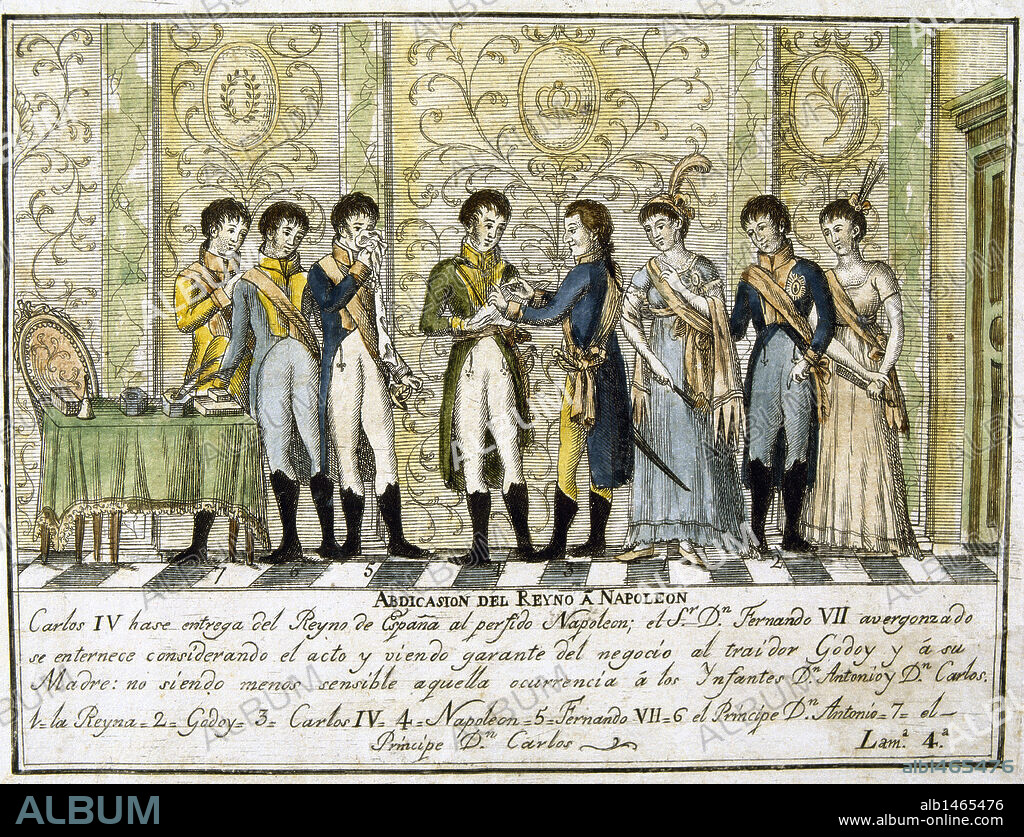 7 6 5 4 3 2
ABDICASION DEL REYNO Â NAPOLEON
Carlos IV hase entrega del Reyno de España al perfido Napoleon; el S.r D.n Fernando VII avergonzado
se enternece considerando el acto y viendo garante del negocio al traidor Godoy y á su
Madre: no siendo menos sensible aquella ocurrencia á los Ynfantes D.n Antonio y D.n Carlos.
1= la Reyna= 2= Godoy= 3= Carlos IV= 4= Napoleon= 5= Fernando VII= 6 el Principe D.n Antonio= 7= el
Principe D.n Carlos
Lam.a 4.a
alb1465476
ALBUM
alb1465476
www.album-online.com